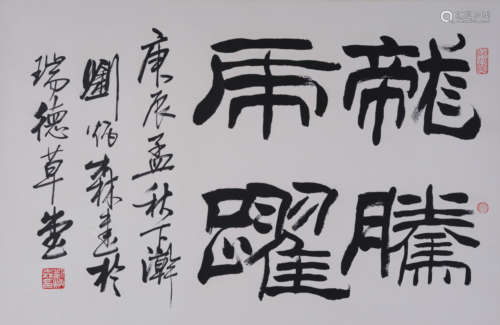 龍騰
虎躍
庚辰孟秋丁瀚
劉炳森書於
瑞德草堂